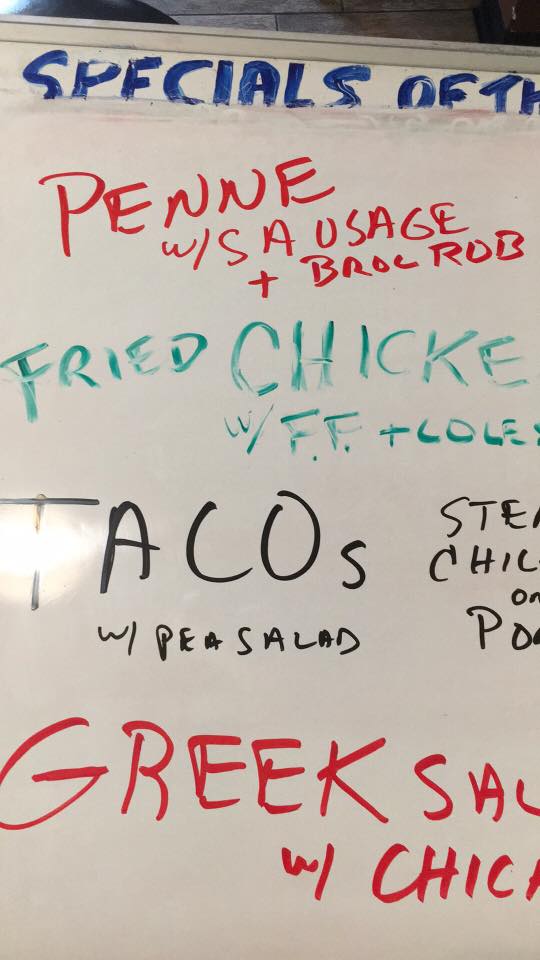 SPECIALS OF TH
PENNE
W/ SAUSAGE
+ BROC ROB
FRIED CHICKE
W/ F.F. + COLES
TACOs
W/ PEA SALAD
STEA
CHIC
OR
PO
GREEK SAL
W/ CHICK